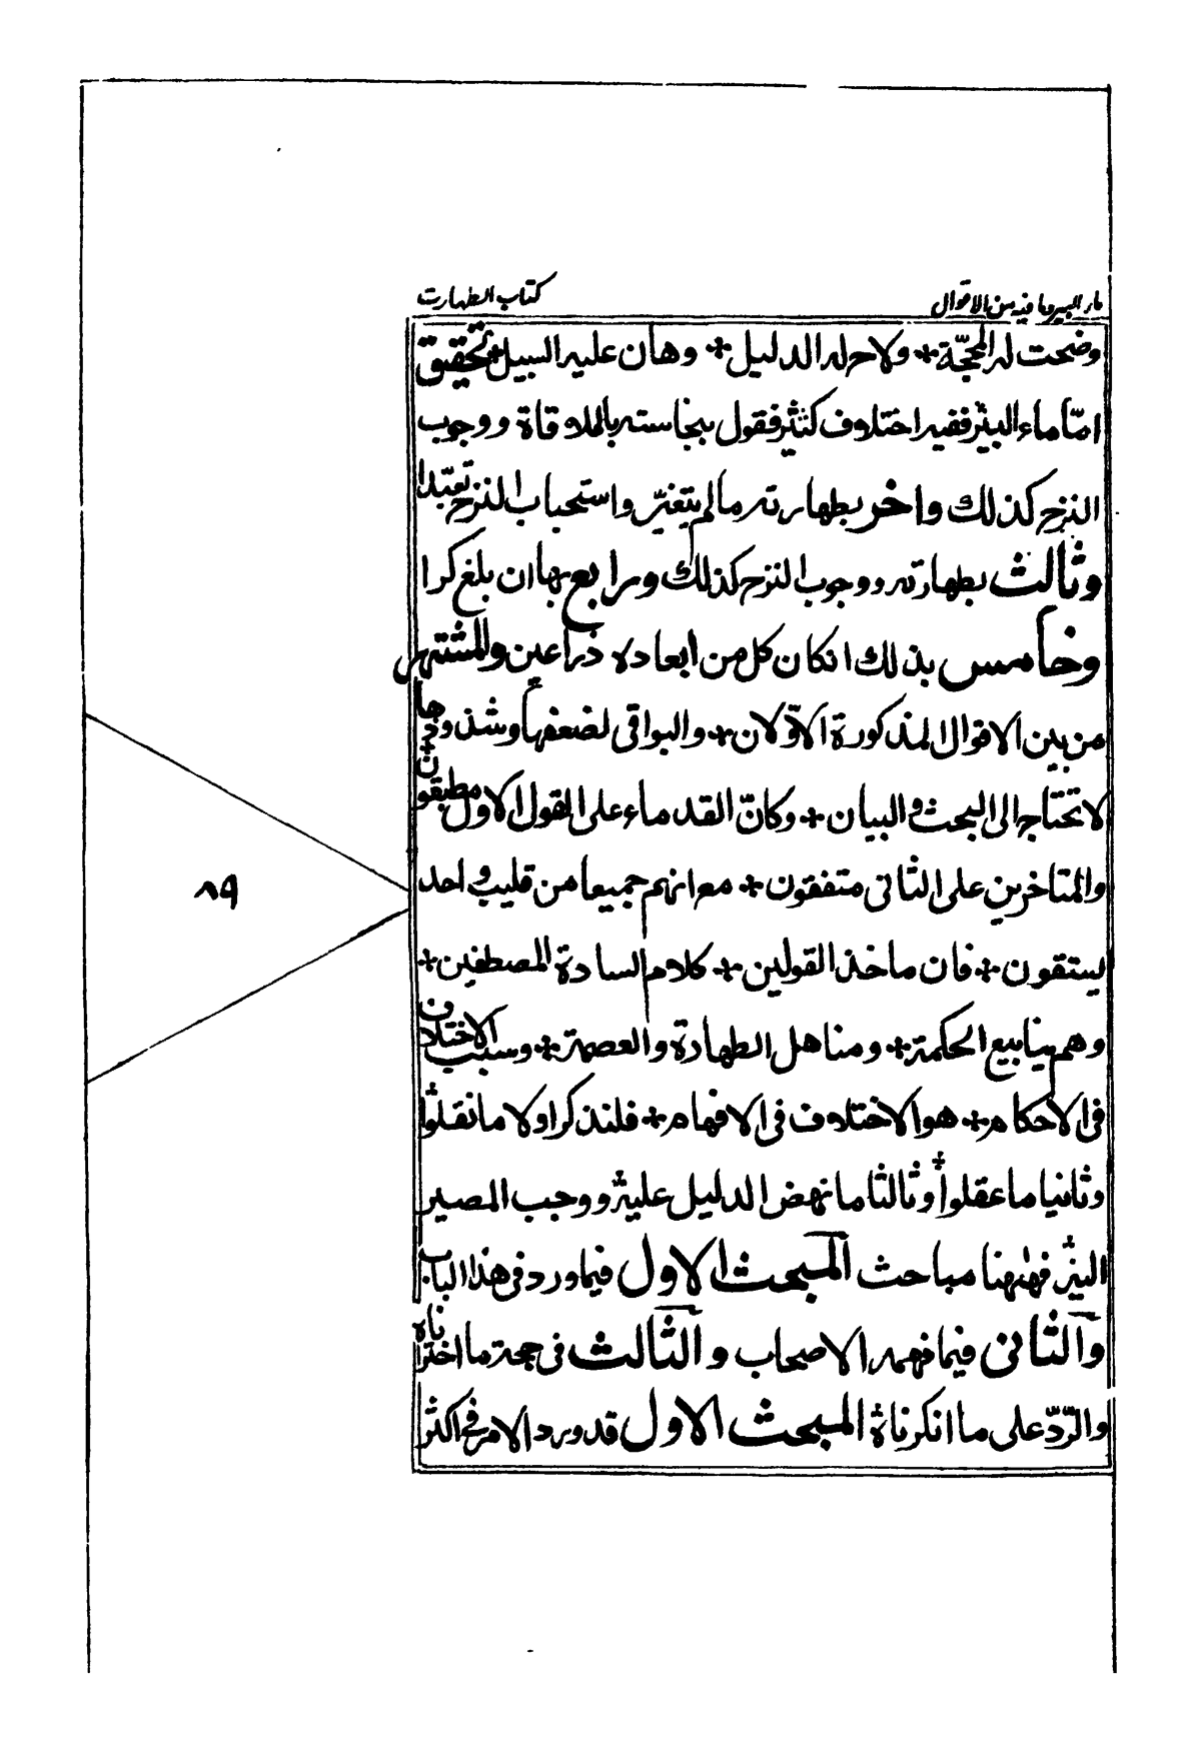 ماء البير وما فيه من الاقوال
كتاب الطهارت
وضحت له المحجّة + ولاح له الدليل + وهان عليه السبيل + تحقيق
امّا ماء البئر ففيه اختلاف كثير فقول بنجاسته بالملاقاة ووجوب
النزح كذلك واخر بطهارته ما لم يتغيّر واستحباب النزح تعبّدا
وثالث بطهارته ووجوب النزح كذلك ورابع بها ان بلغ كرا
وخامس بذلك انكان كل من ابعاده ذراعين والمشتهر
من بين الاقوال المذكورة الاوّلان + والبواقى لضعفها وشذوذها
لا تحتاج الى البحث والبيان + وكانّ القدماء على القول الاول مطبقون +
والمتاخرين على الثانى متفقون + مع انهم جميعا من قليب واحد
يستقون + فان ماخذ القولين + كلام السادة المصطفين +
وهم ينابيع الحكمة + ومناهل الطهارة والعصمة + وسبب الاختلاف
فى الاحكام + هو الاختلاف فى الافهام + فلنذكر اولا ما نقلوا
وثانيا ما عقلوا + وثالثا ما نهض الدليل عليه ووجب المصير
اليه فههنا مباحث المبحث الاول فيما ورد فى هذا الباب
والثانى فيما فهمه الاصحاب والثالث فى حجة ما اخترناه
والرّدّ على ما انكرناه المبحث الاول قد ورد الامر فى اكثر
٨٩